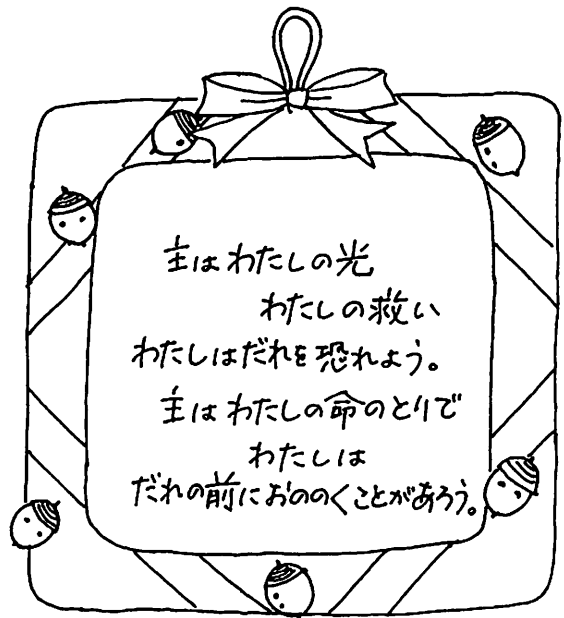 主はわたしの光
わたしの救い
わたしはだれを恐れよう。
主はわたしの命のとりで
わたしは
だれの前におののくことがあろう。